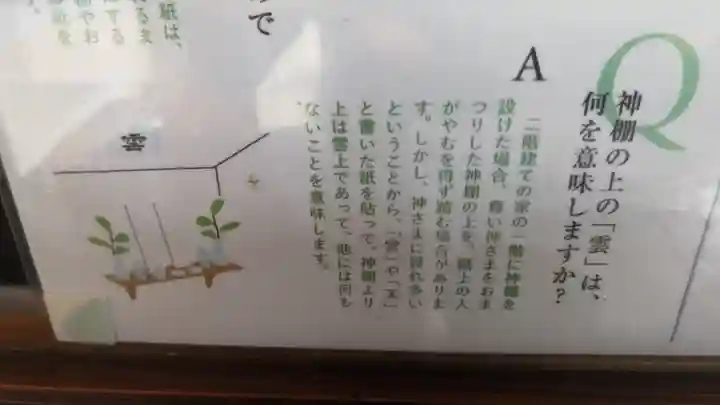 Q
神棚の上の「雲」は、
何を意味しますか？
A
二階建ての家の一階に神棚を
設けた場合、尊い神さまをおま
つりした神棚の上を、階上の人
がやむを得ず踏む場合がありま
す。しかし、神さまに畏れ多い
ということから、「雲」や「天」
と書いた紙を貼って、神棚より
上は雲上であって、他には何も
ないことを意味します。
雲
ので
紙は、